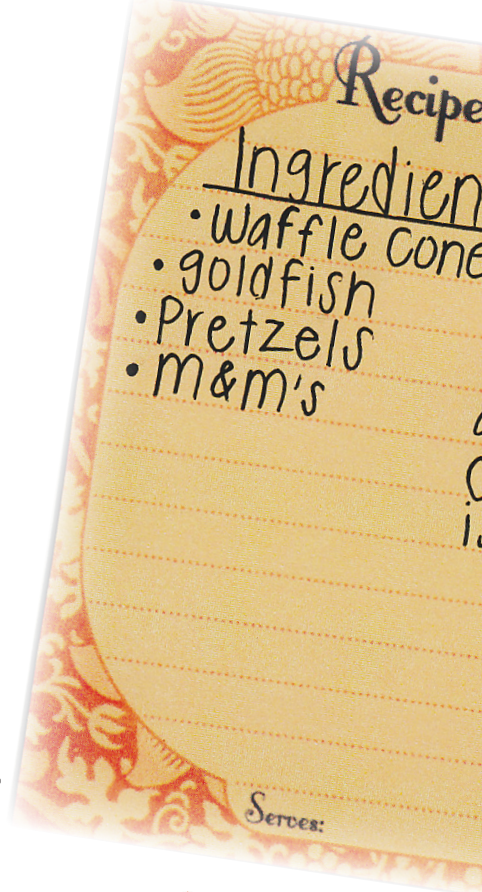 Recipe
Ingredien
• Waffle cone
• goldfish
• Pretzels
• M&M's
Serves: